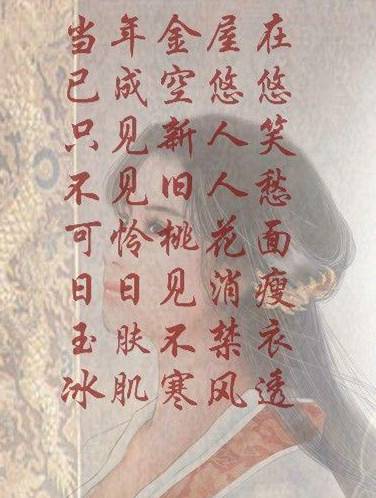 当年金屋在
已成空悠悠
只见新人笑
不见旧人愁
可怜桃花面
日日见消瘦
玉肤不禁衣
冰肌寒风透